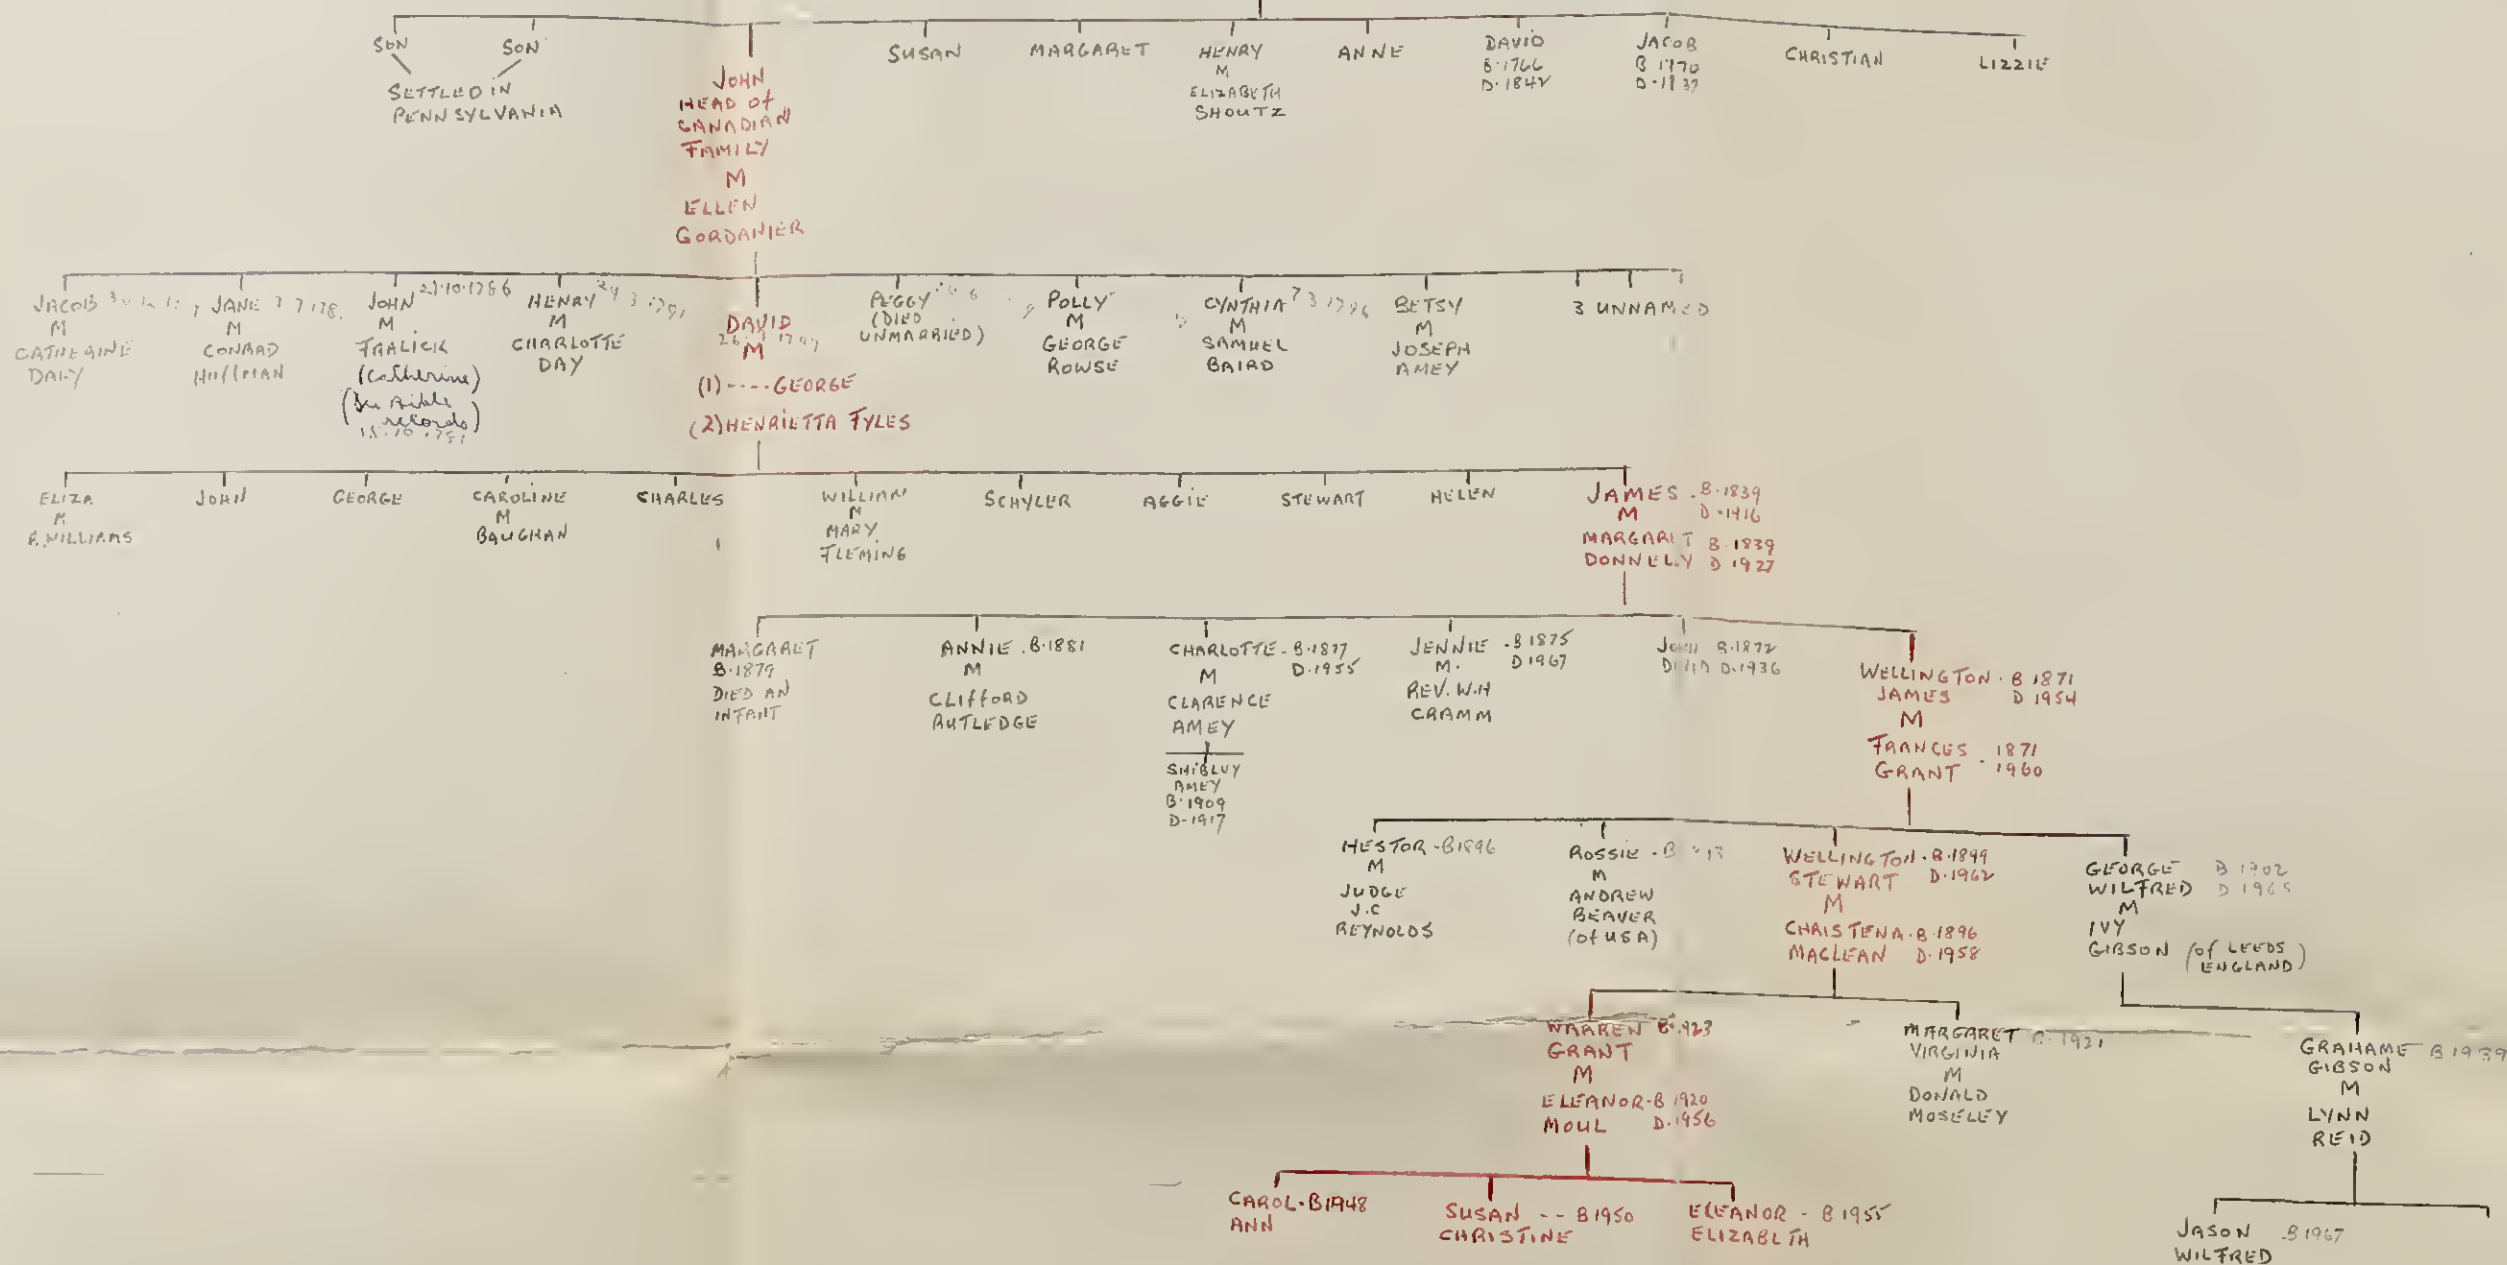 SON
SON
SETTLED IN
PENNSYLVANIA
JOHN
HEAD of
CANADIAN
FAMILY
M
ELLEN
GORDANIER
SUSAN
MARGARET
HENRY
M
ELIZABETH
SHOUTZ
ANNE
DAVID
B·1766
D·1842
JACOB
B 1770
D·1837
CHRISTIAN
LIZZIE
JACOB
M
CATHERINE
DALY
JANE
M
CONRAD
HUFFMAN
JOHN 27·10·1786
M
FRALICK
(Catherine)
(See Bible
records)
HENRY
M
CHARLOTTE
DAY
DAVID
M
(1) ---- GEORGE
(2) HENRIETTA FYLES
PEGGY
(DIED
UNMARRIED)
POLLY
M
GEORGE
ROWSE
CYNTHIA 7 3 1796
M
SAMUEL
BAIRD
BETSY
M
JOSEPH
AMEY
3 UNNAMED
ELIZA
M
R. WILLIAMS
JOHN
GEORGE
CAROLINE
M
BAUGHAN
CHARLES
WILLIAM
M
MARY
FLEMING
SCHYLER
AGGIE
STEWART
HELEN
JAMES - B·1839
M D·1916
MARGARET B·1839
DONNELLY D 1927
MARGARET
B·1879
DIED AN
INFANT
ANNIE . B·1881
M
CLIFFORD
RUTLEDGE
CHARLOTTE - B·1877
M D·1955
CLARENCE
AMEY
SHIBLUY
AMEY
B·1909
D·1917
JENNIE - B 1875
M. D 1967
REV. W.H
CRAMM
JOHN B·1872
DAVID D·1936
WELLINGTON · B 1871
JAMES D 1954
M
FRANCES · 1871
GRANT · 1960
HESTOR - B 1896
M
JUDGE
J.C
REYNOLDS
ROSSIE
M
ANDREW
BEAVER
(of USA)
WELLINGTON · B·1899
STEWART D·1962
M
CHRISTENA · B 1896
MACLEAN D·1958
GEORGE B 1902
WILFRED D 1965
M
IVY
GIBSON (of LEEDS
ENGLAND)
WARREN B·1923
GRANT
M
ELEANOR · B 1920
MOUL D·1956
MARGARET B·1921
VIRGINIA
M
DONALD
MOSELEY
GRAHAME B 1939
GIBSON
M
LYNN
REID
CAROL · B 1948
ANN
SUSAN -- B 1950
CHRISTINE
ELEANOR - B 1955
ELIZABETH
JASON - B 1967
WILFRED